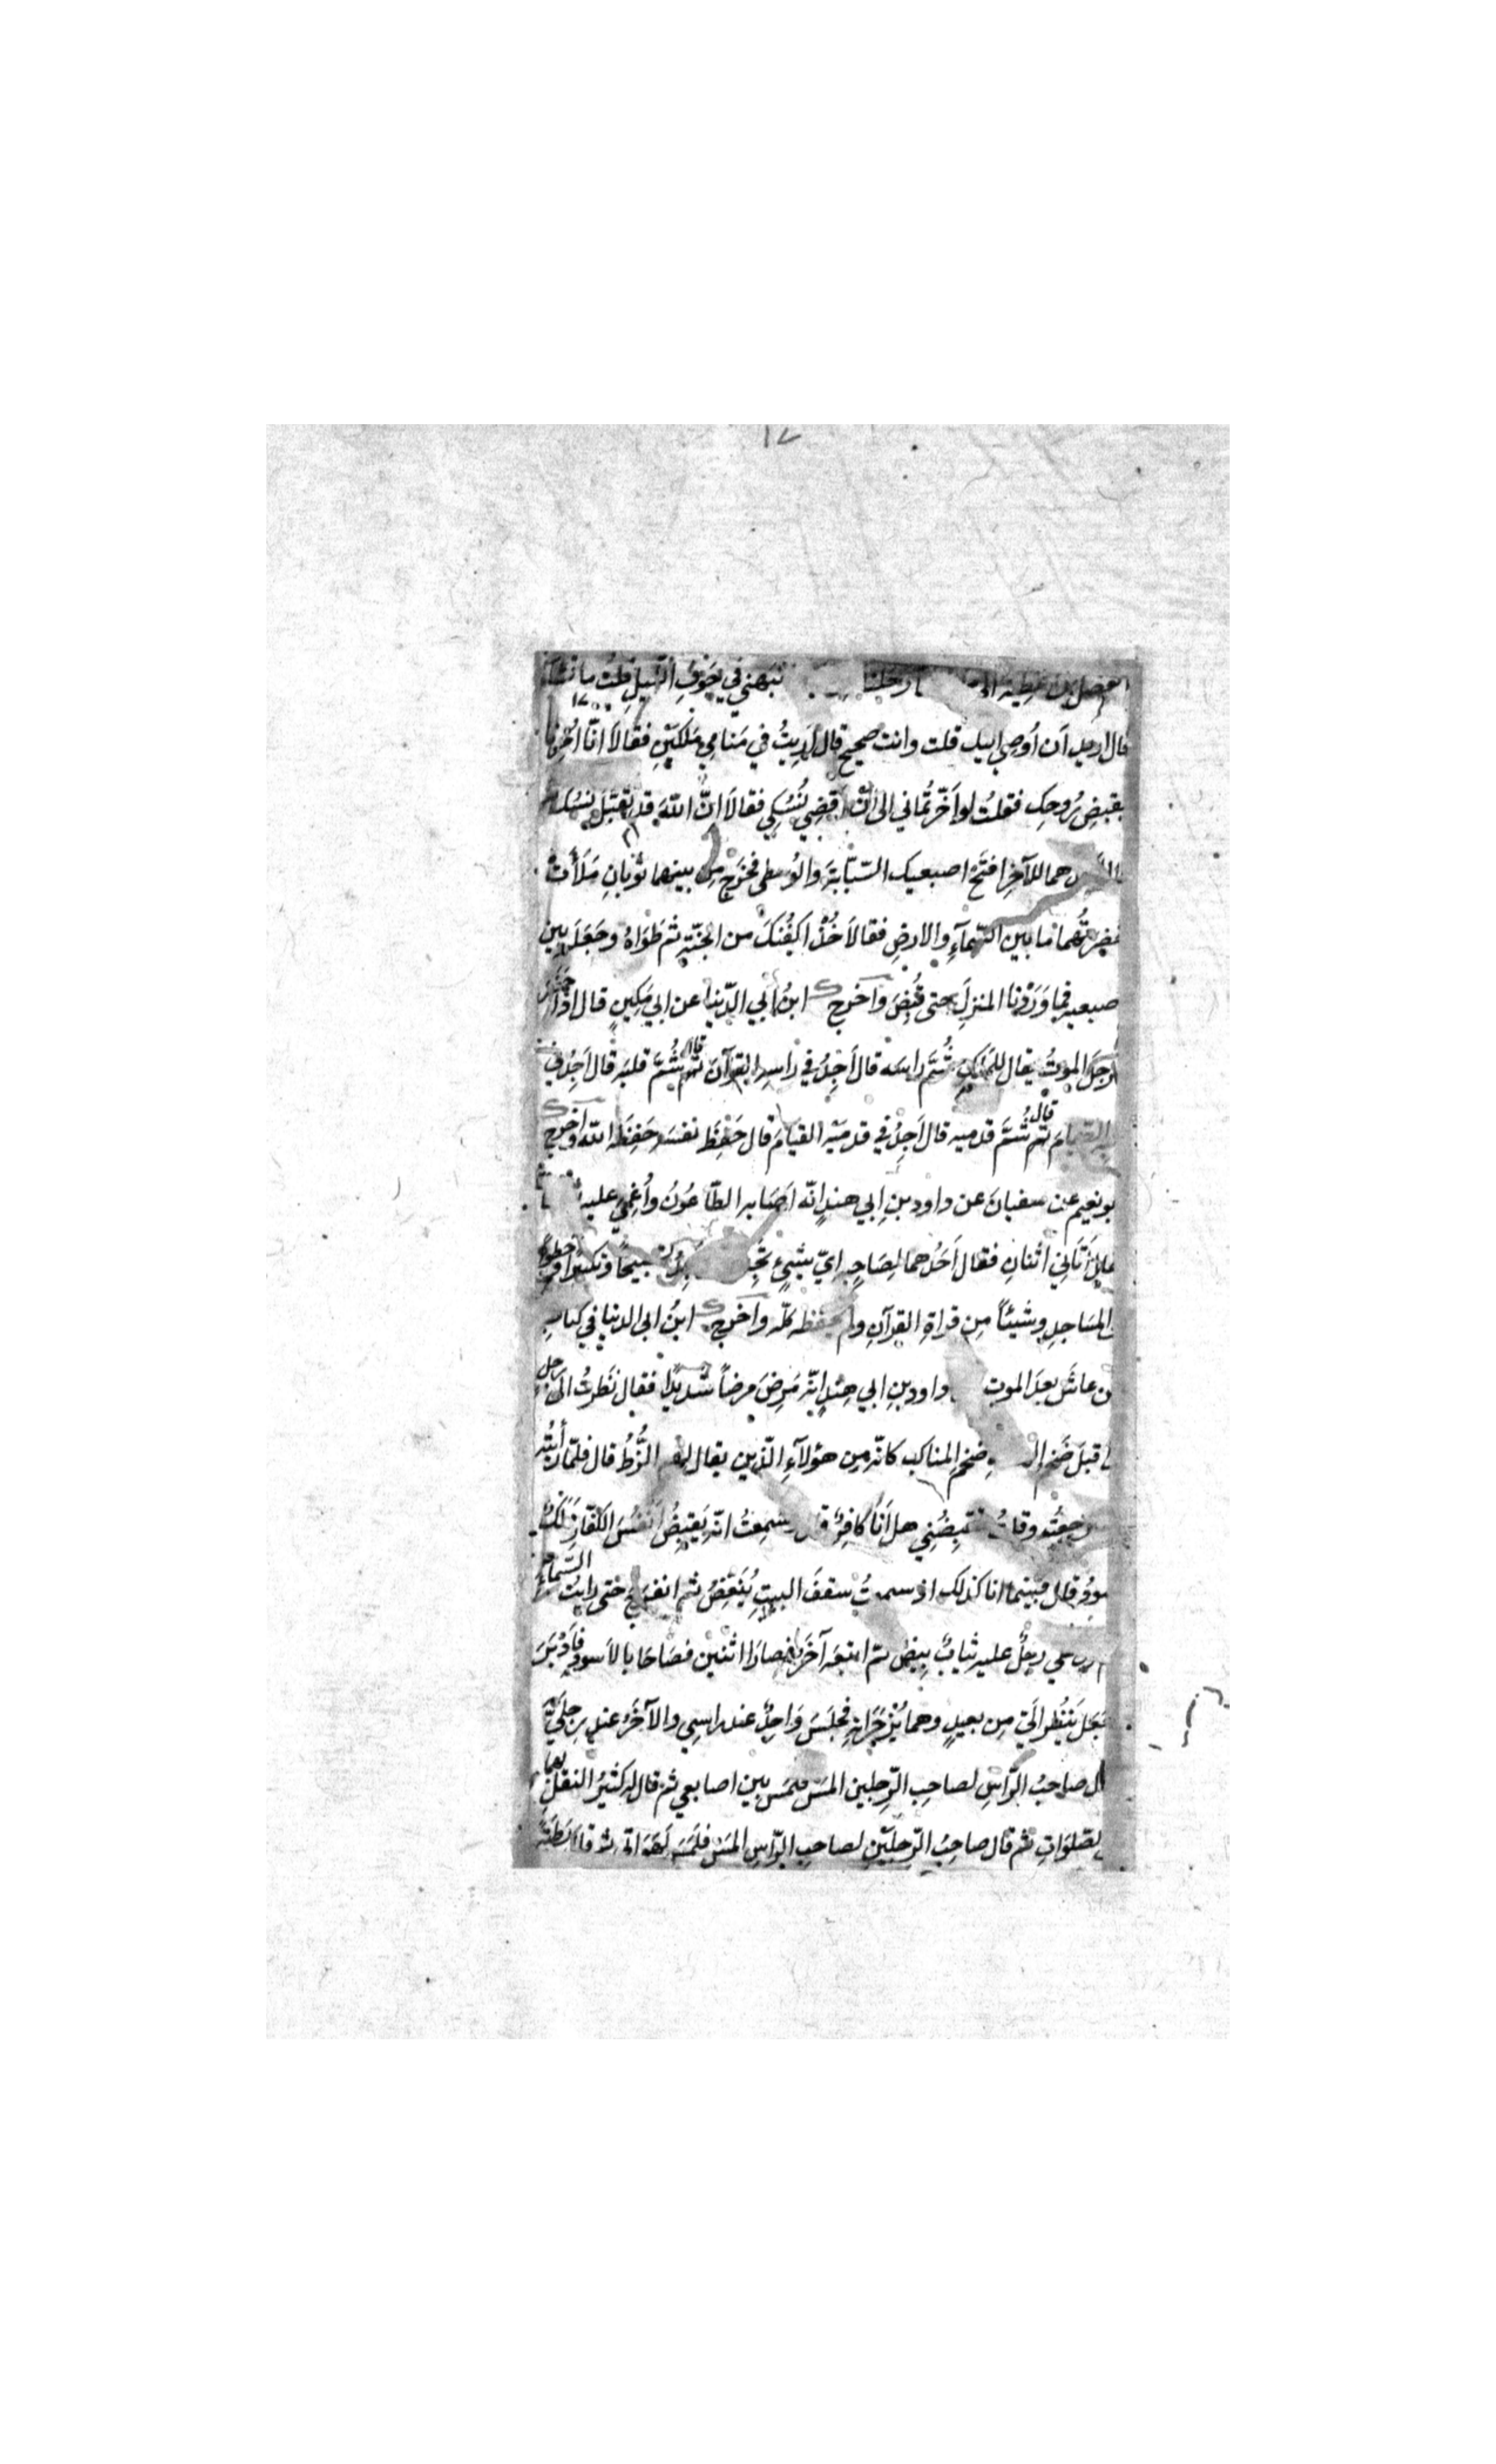 ١٧
الفضل بن عطية نبهني في جوف الليل فقلت ما تشاء
قال اريد اَن اُوصي اليك قلت وانت صحيح قال اُرِيتُ في مَنامي مَلَكَيْنِ فقالاَ انّا اُمِرنا
بقبضِ رُوحِك فقلتُ لو اَخّرتُماني الى اَنْ اَقضِي نُسُكِي فقالاَ اِنَّ اللّهَ قد تقبّلَ نسُكك
هما للآخرِ افتَحْ اصبعيك السّبّابةَ والوُسطى فخرَج مِن بينهما ثوبانِ مَلَأَتْ
خضرتُهما ما بين السّمآءِ والارضِ فقالاَ هٰذَا كفُنكَ من الجنّةِ ثم طَوَاهُ وجَعَلَه بين
اصبعيه فما وَرَدْنا المنزلَ حتى قُبِضَ وَاخرج ابنُ ابي الدّنيا عن ابي مَكِينٍ قال اذا حَضَرَ
الرجلَ الموتُ يقال للمَلَكِ شُمَّ راسَه قال اَجِدُ في راسِهِ القرآنَ قال ثم شُمَّ قلبَه قال اَجِدُ في
قلبِه الصّيامَ قال ثم شُمَّ قدميه قال اَجِدُ في قدمَيْه القيامَ قال حَفِظَ نفسَه حَفِظَه اللّه واخرج
ابو نعيم عن سفيانَ عن داود بنِ ابي هندٍ انّه اَصَابه الطّاعُونُ واُغمِيَ عليه
اَتَانِي اثنانِ فقال اَحَدُهما لِصَاحِبِه اِيّ شيْءٍ تَجِدُ تسبيحًا وتكبيرًا وخَطْوًا
الى المسَاجدِ وشَيئًا مِن قراةِ القرآنِ ولم يحفظه كلّه واخرج ابنُ ابى الدنيا في كتابِ
من عاشَ بعدَ الموتِ داود بنِ ابي هندٍ انّه مَرِضَ مرضًا شديدًا فقال نَظرتُ الى رجل
قد اقبلَ ضَخم ضخم المناكب كانّه مِن هؤلآءِ الّذين يقال لهم الزُّطُّ قال فلمّا رأيتُه
استرجعتُ وقلتُ تقبِضُنِي هل اَنَا كافِرٌ قال وسمِعتُ انّه يَقبِضُ اَنفُسَ الكفّارِ مَلَكٌ
اسودُ قال فبينما انا كذلك اذ سمعتُ سقفَ البيتِ يَنتقِضُ ثم انفرَج حتى رايتُ السّماء
ثم نزل عليّ رجلٌ عليه ثيابٌ بيضٌ ثمّ اتبعَه آخَرُ فصارَا اثنين فصَاحَا بالاَسودِ فَاَدْبَرَ
وجعل يَنظُر الَيّ مِن بعيدٍ وهما يَزْجُرَانِهِ فجلسَ وَاحِدٌ عند راسِي والآخَرُ عند رِجلَيّ
فقال صاحبُ الرّاسِ لصاحبِ الرّجلين المسْ فلمَسَ بين اصابعي ثم قال له كثيرُ النقلِ بهما
الى الصّلوَاتِ ثم قال صاحبُ الرّجلَيْنِ لصاحبِ الرّاسِ المَسْ فلمَسَ لَهَاتي ثم قال رَطبةٌ